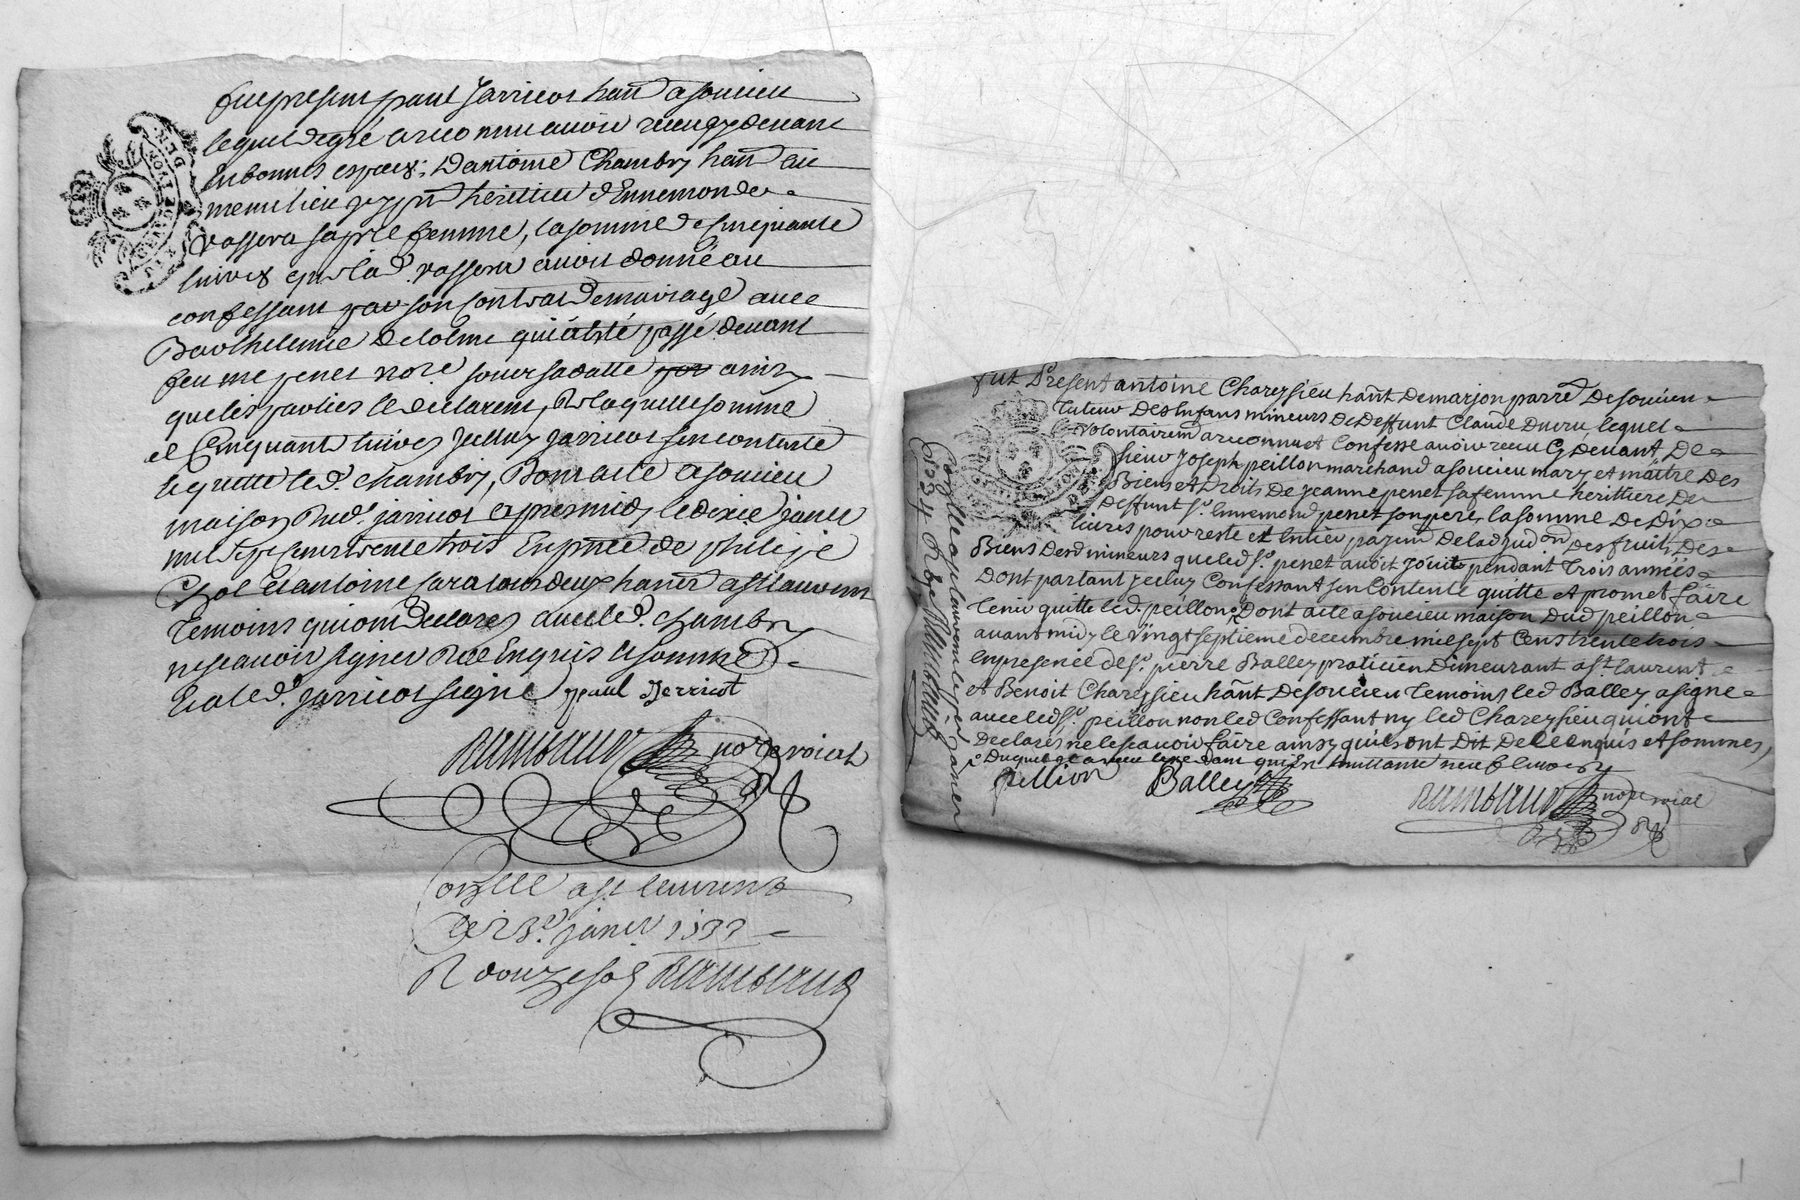 fut present paul Jarricot hant a soucieu
lequel de gré a reconnu avoir receu cy devant
en bonnes especes, D'antoine Chambry hant au
meme lieu heritier d'Ennemonde
Vassera sa femme, la somme de cinquante
livres que lad. Vassera avoit donné au
confessant par son contrat de mariage avec
Barthelemie Delolme qui a esté passé devant
feu me penet nore. sous sa datte par ainsy
que les parties le declarent, De laquelle somme
de Cinquante livres Jcelluy Jarricot sen contente
et quitte led. chambry, Dont acte a soucieu
maison Dud. jarricot apres midy le dixie. janvr
mil sept cent trente trois En pnce. de philipe
et antoine deux hants a st laurent
temoins qui ont declarés avec led. chambry
ne scavoir signer De ce Enquis et sommés
Et a led. jarricot signé paul Jerricot
Rambaud nore roial
Conlle a st laurent
janer 1733
R douze sols Rambaud
fut Present antoine Chareysieu hant De marjon parre. De soucieu
tuteur Des Enfans mineurs De Deffunt Claude Ducru lequel
volontairemt a reconnu et Confessé avoir receu Cy devant, De
sieur Joseph peillon marchand a soucieu mary et maitre Des
Biens et Droits De jeanne penet sa femme herittiere De
Deffunt sr. Ennemond penet son pere, la somme De Dix
livres pour reste et Entier payemt De ladjudon Des fruits Des
Biens Desd mineurs que led sr. penet avoit Jouits pendant trois années
Dont partant Jcelluy Confessant sen Contente quitte et promet faire
tenir quitte led. peillon Dont acte a soucieu maison Dud peillon
avant midy le vingt septieme decembre mil sept Cens trente trois
En presence de sr. pierre Balley praticien Demeurant a st. laurent
et Benoit Chareysieu hant De soucieu temoins led Balley a signé
avec led sr. peillon non led Confessant ny led Chareysieu qui ont
Declarés ne le scavoir faire ainsy quils ont Dit De ce Enquis et sommés,
peillion Balley Rambaud nore roial
Conlle a st laurent le janer
1734 R Rambaud